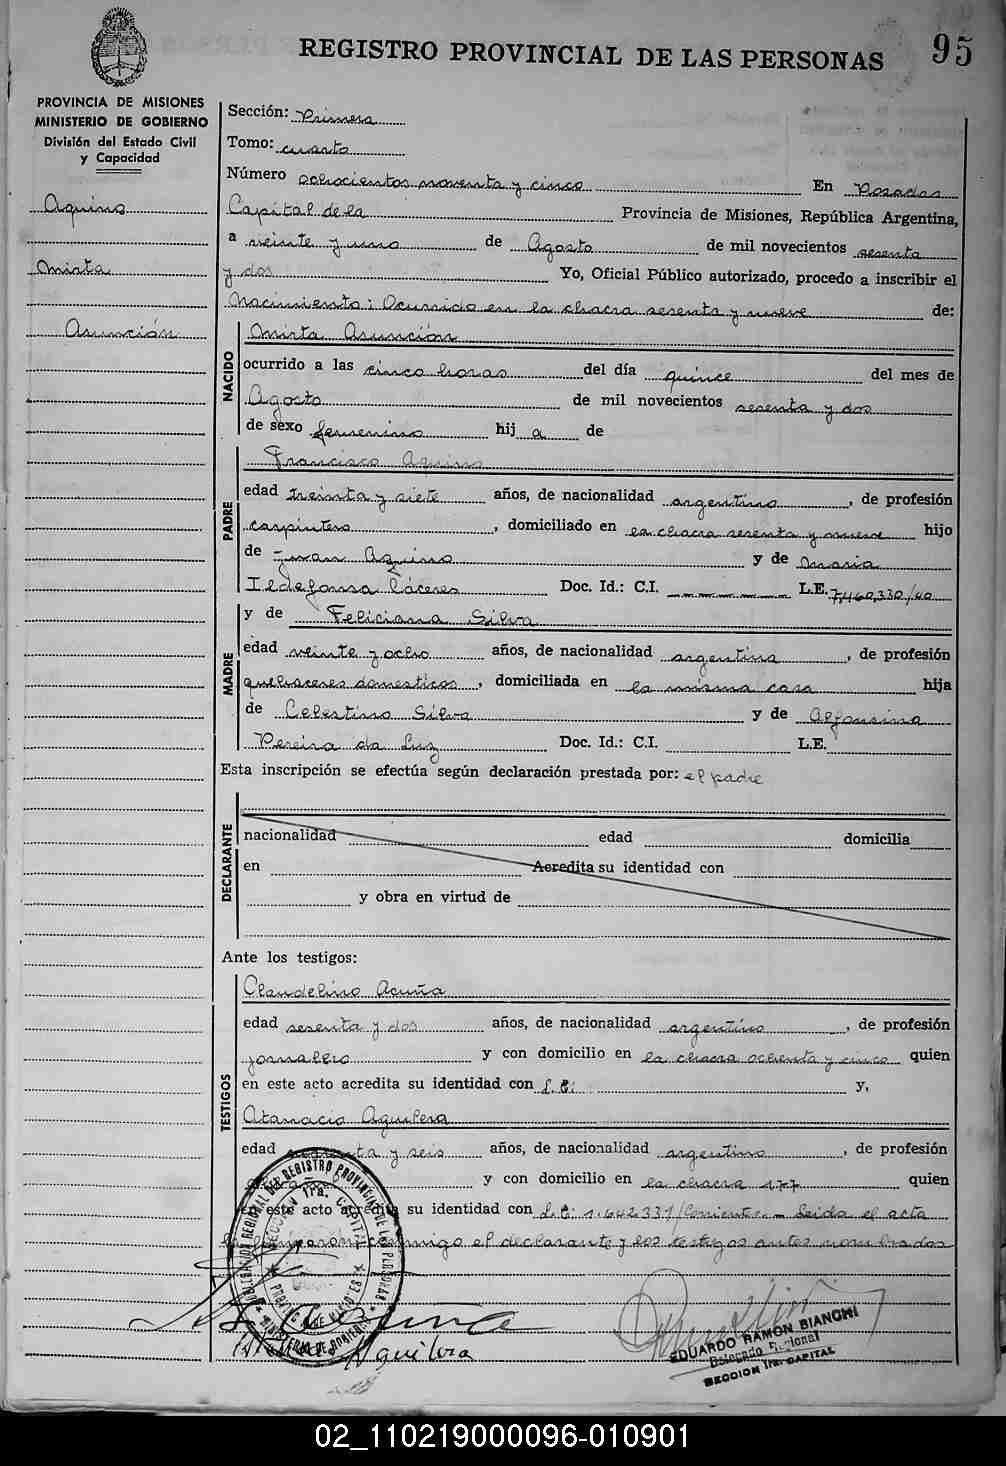 REGISTRO PROVINCIAL DE LAS PERSONAS
95
PROVINCIA DE MISIONES
MINISTERIO DE GOBIERNO
División del Estado Civil
y Capacidad
Aquino
Mirta
Asunción
Sección: Primera
Tomo: cuarto
Número ochocientos noventa y cinco En Posadas
Capital de la Provincia de Misiones, República Argentina,
a veinte y uno de Agosto de mil novecientos sesenta
y dos Yo, Oficial Público autorizado, procedo a inscribir el
Nacimiento: Ocurrido en la chacra sesenta y nueve de:
NACIDO
Mirta Asunción
ocurrido a las cinco horas del día quince del mes de
Agosto de mil novecientos sesenta y dos
de sexo femenino hij a de
PADRE
Francisco Aquino
edad treinta y siete años, de nacionalidad argentino, de profesión
carpintero, domiciliado en la chacra sesenta y nueve hijo
de Juan Aquino y de Maria
Ildefonsa Cáceres Doc. Id.: C.I. L.E. 7.460.330/40
MADRE
y de Feliciana Silva
edad veinte y ocho años, de nacionalidad argentina, de profesión
quehaceres domesticos, domiciliada en la misma casa hija
de Celestino Silva y de Alfonsina
Pereira da Luz Doc. Id.: C.I. L.E.
Esta inscripción se efectúa según declaración prestada por: el padre
DECLARANTE
nacionalidad edad domicilia
en Acredita su identidad con
y obra en virtud de
Ante los testigos:
TESTIGOS
Claudelino Acuña
edad sesenta y dos años, de nacionalidad argentino, de profesión
jornalero y con domicilio en la chacra ochenta y cinco quien
en este acto acredita su identidad con L.E: y,
Atanacio Aguilera
edad y seis años, de nacionalidad argentino, de profesión
y con domicilio en la chacra 177 quien
en este acto acredita su identidad con L.E: 1.642.331/Corrientes.- Leida el acta
conmigo el declarante y los testigos antes nombrados
DELEGACION REGIONAL DEL REGISTRO PROVINCIAL DE LAS PERSONAS
SECCION 1ra. CAPITAL
PROVINCIA DE MISIONES
MINISTERIO DE GOBIERNO
Aguilera
EDUARDO RAMON BIANCHI
Delegado Regional
SECCION 1ra. CAPITAL
02_110219000096-010901